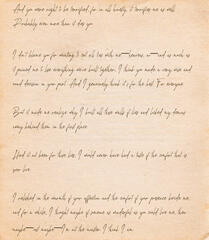 And you were right to be terrified, for in all honesty, it terrifies me as well.
Probably even more than it does you.
I don't blame you for wanting to cut all ties with me—however, and as much as
it pained me to lose everything we've built together, I think you made a very wise and
decision in your part. And I genuinely think it's for the best. For everyone.
But it made me realize why I built all those walls of lies and hid my demons
away behind them in the first place.
Had it not been for those lies, I would never have had a taste of the comfort that is
your love.
I relished in the warmth of your affection and the comfort of your presence beside me,
and for a while, I thought maybe if someone as wonderful as you could love me, then
maybe—just maybe—I'm not the monster I think I am.